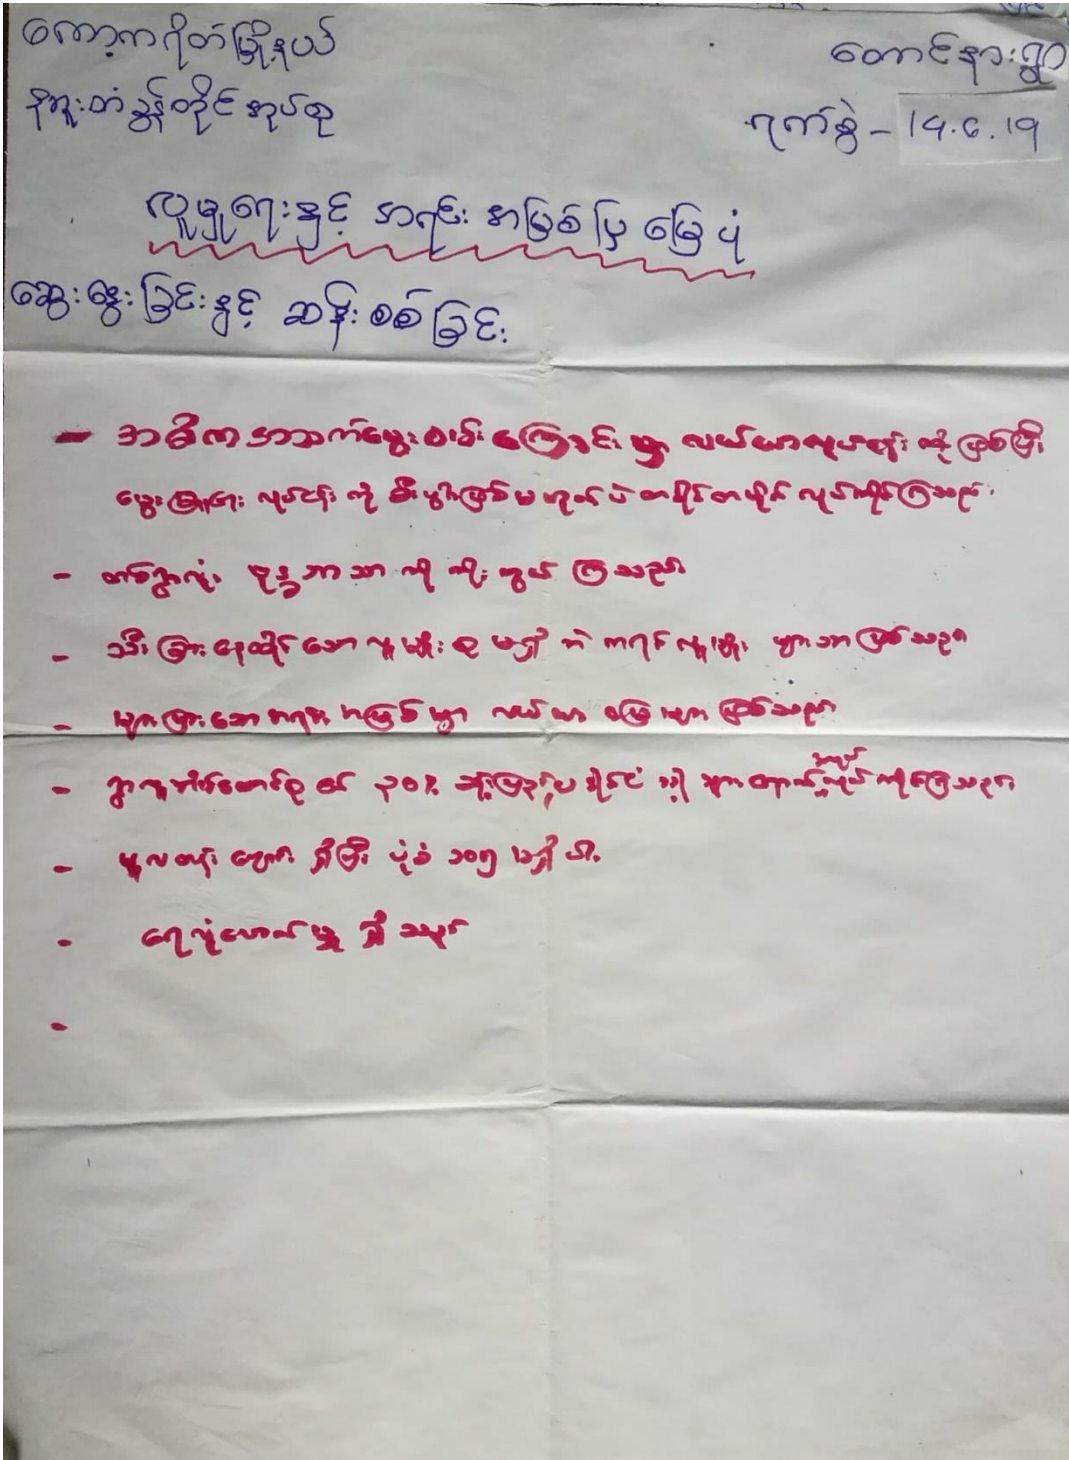 ကော့ကရိတ်မြို့နယ် တောင်နားရွာ
နဘူးတံခွန်တိုင်အုပ်စု ရက်စွဲ - 14.6.19
လူမှုရေးနှင့် အရင်းအမြစ်ပြမြေပုံ
ဆွေးနွေးခြင်းနှင့် ဆန်းစစ်ခြင်း
- အဓိကအသက်မွေးဝမ်းကြောင်းမှာ လယ်ယာလုပ်ငန်းကိုဖြစ်ပြီး
မွေးမြူရေးလုပ်ငန်းကို စီးပွါးဖြစ်မဟုတ်ပဲ တပိုင်တပိုင် လုပ်ကိုင်ကြသည်။
- တစ်ရွာလုံး ဗုဒ္ဓဘာသာကို ကိုးကွယ်ကြသည်။
- သီးခြားနေထိုင်သော လူမျိုးစုမရှိဘဲ ကရင်လူမျိုးများသာဖြစ်သည်။
- များပြားသောအရင်းအမြစ်မှာ လယ်ယာမြေများဖြစ်သည်။
- ရွာလူအိမ်ထောင်စု၏ ၃၀% ဆို့ပြည်ပနိုင်ငံသို့ သွားရောက်အလုပ်လုပ်ကိုင်ကြသည်။
- မူလတန်းကျောင်းရှိပြီး ပုံစံ ၁၀၅ မရှိပါ။
- ရေလွှံမောက်မှု ရှိသည်
-